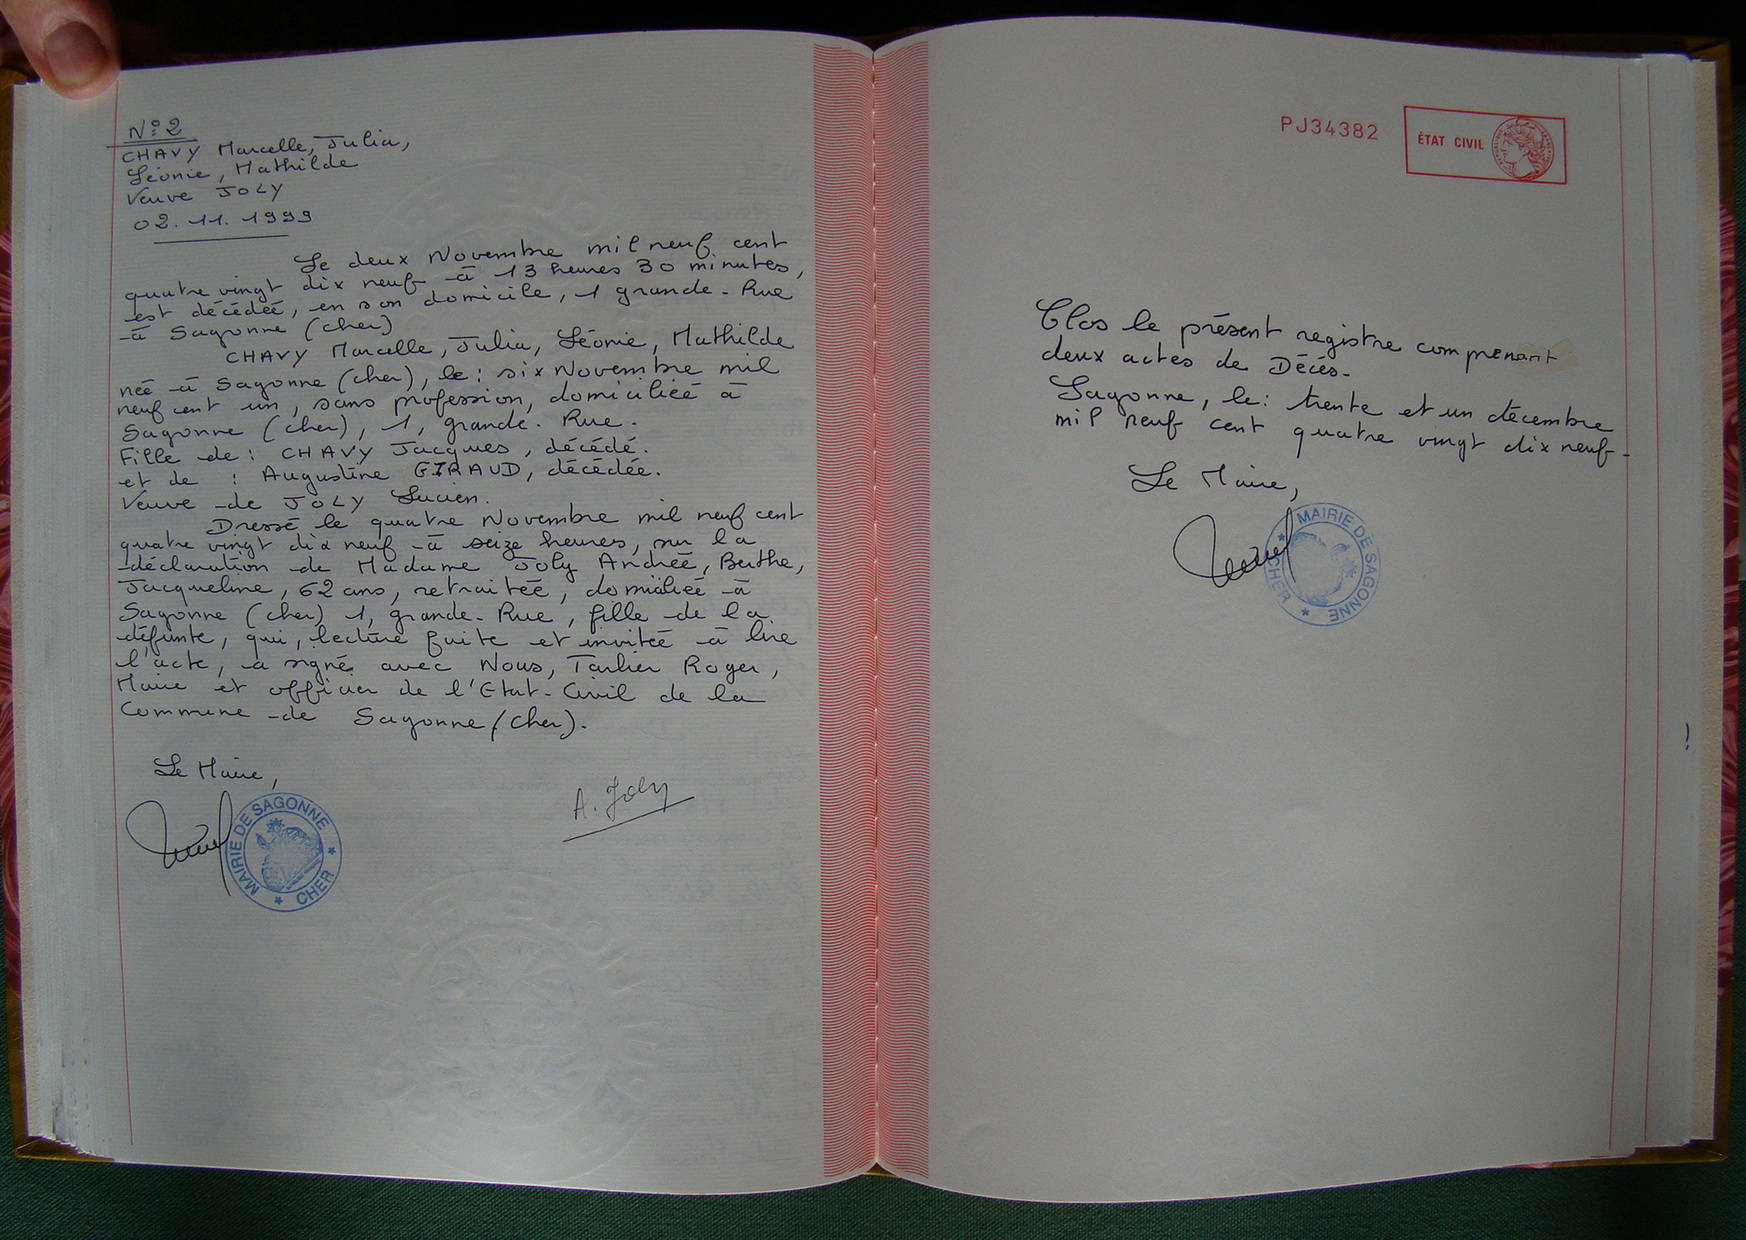 N°2
CHAVY Marcelle, Julia,
Léonie, Mathilde
Veuve JOLY
02.11.1999
Le deux Novembre mil neuf cent
quatre vingt dix neuf à 13 heures 30 minutes,
est décédée, en son domicile, 1 grande-Rue
à Sagonne (cher)
CHAVY Marcelle, Julia, Léonie, Mathilde
née à Sagonne (cher), le: six Novembre mil
neuf cent un, sans profession, domiciliée à
Sagonne (cher), 1, grande-Rue.
Fille de: CHAVY Jacques, décédé.
et de : Augustine GIRAUD, décédée.
Veuve de JOLY Lucien.
Dressé le quatre Novembre mil neuf cent
quatre vingt dix neuf à seize heures, sur la
déclaration de Madame Joly Andrée, Berthe,
Jacqueline, 62 ans, retraitée, domiciliée à
Sagonne (cher) 1, grande-Rue, fille de la
défunte, qui, lecture faite et invitée à lire
l'acte, a signé avec Nous, Roger,
Maire et officier de l'Etat-Civil de la
Commune de Sagonne (cher).
Le Maire,
A. Joly
MAIRIE DE SAGONNE
* CHER *
PJ34382
ÉTAT CIVIL
Clos le présent registre comprenant
deux actes de Décès.
Sagonne, le: trente et un décembre
mil neuf cent quatre vingt dix neuf-
Le Maire,
MAIRIE DE SAGONNE
* CHER *